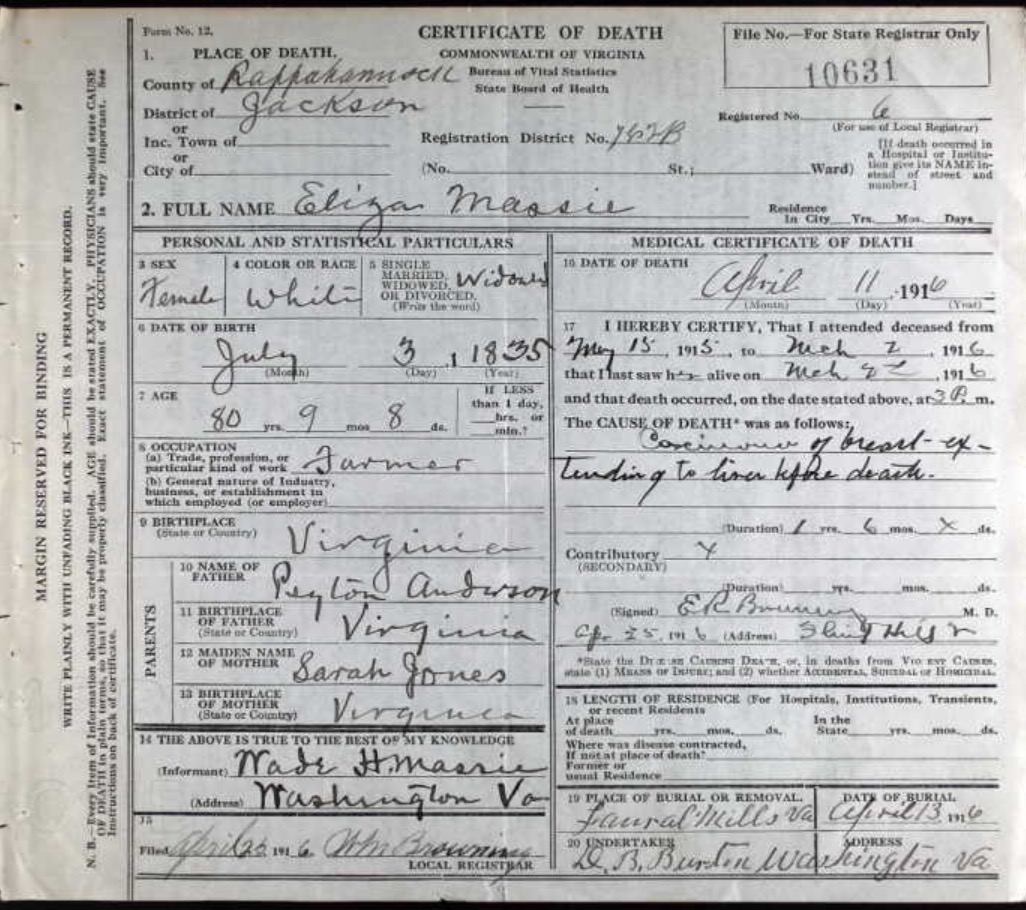 Form No. 12.
CERTIFICATE OF DEATH
COMMONWEALTH OF VIRGINIA
Bureau of Vital Statistics
State Board of Health
File No.—For State Registrar Only
10631
1. PLACE OF DEATH.
County of Rappahannock
District of Jackson
or
Inc. Town of
or
City of
Registration District No. 782B
Registered No. 6
(For use of Local Registrar)
(No. St.; Ward)
[If death occurred in
a Hospital or Institu-
tion give its NAME in-
stead of street and
number.]
2. FULL NAME Eliza Massie
Residence
In City Yrs. Mos. Days
PERSONAL AND STATISTICAL PARTICULARS
3 SEX
Female
4 COLOR OR RACE
White
5 SINGLE
MARRIED,
WIDOWED,
OR DIVORCED.
(Write the word)
Widowed
6 DATE OF BIRTH
July 3, 1835
(Month) (Day) (Year)
7 AGE
80 yrs. 9 mos 8 ds.
If LESS
than 1 day,
hrs. or
min.?
8 OCCUPATION
(a) Trade, profession, or
particular kind of work Farmer
(b) General nature of Industry,
business, or establishment in
which employed (or employer)
9 BIRTHPLACE
(State or Country) Virginia
PARENTS
10 NAME OF
FATHER Peyton Anderson
11 BIRTHPLACE
OF FATHER
(State or Country) Virginia
12 MAIDEN NAME
OF MOTHER Sarah Jones
13 BIRTHPLACE
OF MOTHER
(State or Country) Virginia
14 THE ABOVE IS TRUE TO THE BEST OF MY KNOWLEDGE
(Informant) Wade H. Massie
(Address) Washington Va
15
Filed April 25 1916 Wm Browning
LOCAL REGISTRAR
MEDICAL CERTIFICATE OF DEATH
16 DATE OF DEATH
April 11, 1916
(Month) (Day) (Year)
17 I HEREBY CERTIFY, That I attended deceased from
May 15, 1915, to Mch 2, 1916
that I last saw her alive on Mch 2, 1916
and that death occurred, on the date stated above, at 3 P. m.
The CAUSE OF DEATH* was as follows:
Carcinoma of breast-ex-
tending to liver before death.
(Duration) 1 yrs. 6 mos. X ds.
Contributory X
(SECONDARY)
(Duration) yrs. mos. ds.
(Signed) E R Browning M. D.
Apr 25, 1916 (Address) Flint Hill
*State the DISEASE CAUSING DEATH, or, in deaths from VIOLENT CAUSES,
state (1) MEANS OF INJURY; and (2) whether ACCIDENTAL, SUICIDAL or HOMICIDAL.
18 LENGTH OF RESIDENCE (For Hospitals, Institutions, Transients,
or recent Residents
At place
of death yrs. mos. ds.
In the
State yrs. mos. ds.
Where was disease contracted,
If not at place of death?
Former or
usual Residence
19 PLACE OF BURIAL OR REMOVAL.
Laural Mills Va
DATE OF BURIAL
April 13, 1916
20 UNDERTAKER
D. B. Burton
ADDRESS
Washington Va
MARGIN RESERVED FOR BINDING
WRITE PLAINLY WITH UNFADING BLACK INK—THIS IS A PERMANENT RECORD.
N. B.—Every item of Information should be carefully supplied. AGE should be stated EXACTLY. PHYSICIANS should state CAUSE
OF DEATH in plain terms, so that it may be properly classified. Exact statement of OCCUPATION is very important. See
Instructions on back of certificate.